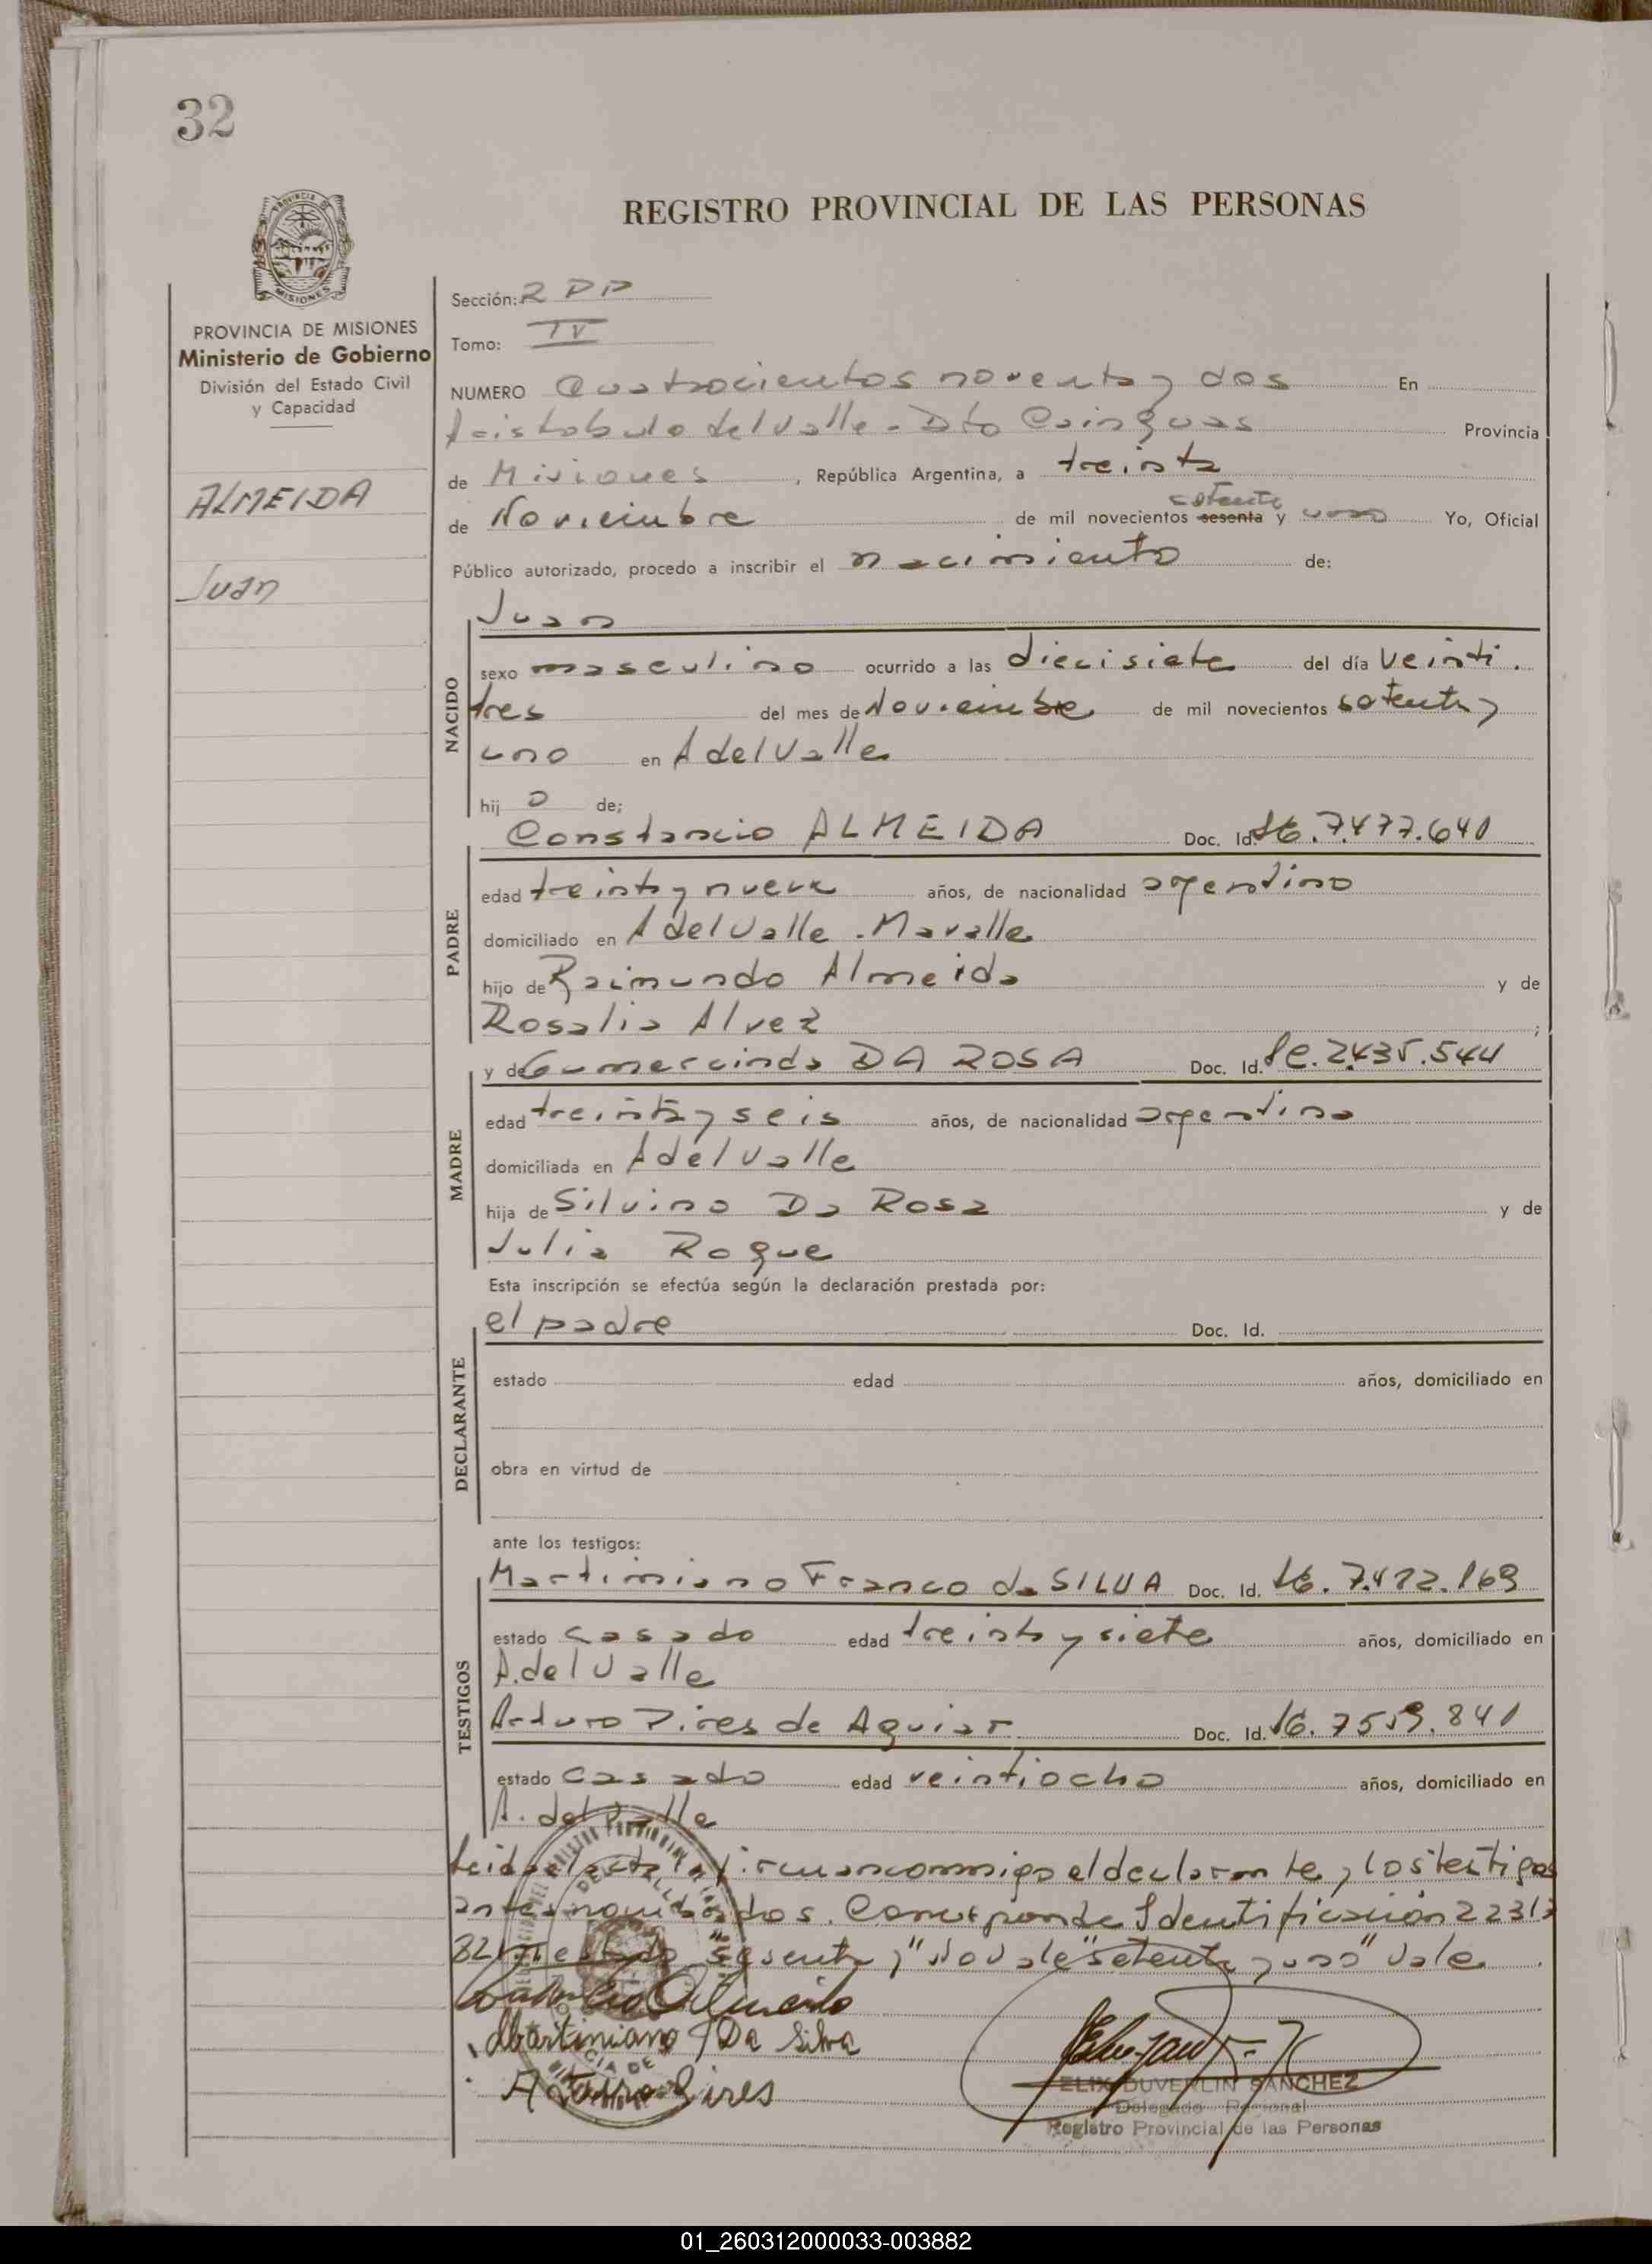 32
REGISTRO PROVINCIAL DE LAS PERSONAS
PROVINCIA DE MISIONES
Ministerio de Gobierno
División del Estado Civil
y Capacidad
ALMEIDA
Juan
Sección:
Tomo: IV
NUMERO Cuatrocientos noventa y dos En
Aristobulo del Valle - Dto Cainguas Provincia
de Misiones, República Argentina, a treinta
setenta
de Noviembre de mil novecientos sesenta y uno Yo, Oficial
Público autorizado, procedo a inscribir el nacimiento de:
Juan
NACIDO
sexo masculino ocurrido a las diecisiete del día veinti.
tres del mes de Noviembre de mil novecientos setenta y
uno en A del Valle
hij o de;
Constancio ALMEIDA Doc. Id. 7.477.640
PADRE
edad treinta y nueve años, de nacionalidad argentino
domiciliado en A del Valle - Mavalle
hijo de Raimundo Almeida y de
Rosalia Alvez ;
y de Gumercinda DA ROSA Doc. Id. 2.435.544
MADRE
edad treinta y seis años, de nacionalidad argentina
domiciliada en A del Valle
hija de Silvino Da Rosa y de
Julia Roque
Esta inscripción se efectúa según la declaración prestada por:
el padre Doc. Id.
DECLARANTE
estado edad años, domiciliado en
obra en virtud de
ante los testigos:
TESTIGOS
Martimiano Franco da SILVA Doc. Id. 7.472.169
estado casado edad treinta y siete años, domiciliado en
A. del Valle
Arturo Pires de Aguiar Doc. Id. 7559.841
estado casado edad veintiocho años, domiciliado en
A. del Valle
Leida el acta la firman conmigo el declarante y los testigos
antes nombrados. Corresponde Identificación 22313
"sesenta y" No vale "setenta y uno" Vale
Constancio Almeida
Martiniano F Da Silva
Arturo Pires
ELIX DUVERLIN SANCHEZ
Delegado Regional
Registro Provincial de las Personas
01_260312000033-003882